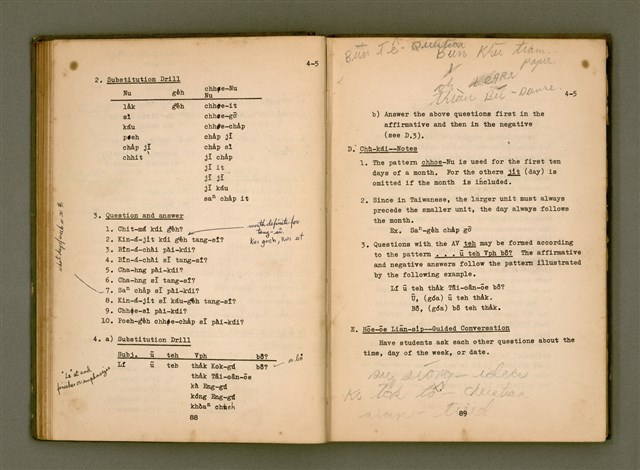 4-5
2. Substitution Drill
Nu ge̍h chhoe-Nu
Nu
la̍k ge̍h chhoe-it
sì chhoe-gō͘
káu chhoe-cha̍p
poeh cha̍p jī
cha̍p jī cha̍p sì
chhit jī cha̍p
jī it
jī jī
jī káu
saⁿ cha̍p it
3. Question and answer
1. Chit-má kúi ge̍h?
2. Kin-á-jit kúi ge̍h tang-sî?
3. Bîn-á-chài pài-kúi?
4. Bîn-á-chài sī tang-sî?
5. Cha-hng pài-kúi?
6. Cha-hng sī tang-sî?
7. Saⁿ cha̍p sī pài-kúi?
8. Kin-á-jit sī káu-ge̍h tang-sî?
9. Chhoe-sì pài-kúi?
10. Poeh-ge̍h chhoe-cha̍p sī pài-kúi?
4. a) Substitution Drill
Subj. ū teh Vph bô?
Lí ū teh tha̍k Kok-gú bô?
tha̍k Tâi-oân-ōe
kà Eng-gú
kóng Eng-gú
khòaⁿ chheh
88
Bûn Tê - Question
paper
4-5
b) Answer the above questions first in the
affirmative and then in the negative
(see D.3).
D. Chù-kái--Notes
1. The pattern chhoe-Nu is used for the first ten
days of a month. For the others jit (day) is
omitted if the month is included.
2. Since in Taiwanese, the larger unit must always
precede the smaller unit, the day always follows
the month.
Ex. Saⁿ-ge̍h cha̍p gō͘
3. Questions with the AV teh may be formed according
to the pattern . . . ū teh Vph bô? The affirmative
and negative answers follow the pattern illustrated
by the following example.
Lí ū teh tha̍k Tâi-oân-ōe bô?
Ū, (góa) ū teh tha̍k.
Bô, (góa) bô teh tha̍k.
E. Hōe-ōe Liān-si̍p--Guided Conversation
Have students ask each other questions about the
time, day of the week, or date.
89